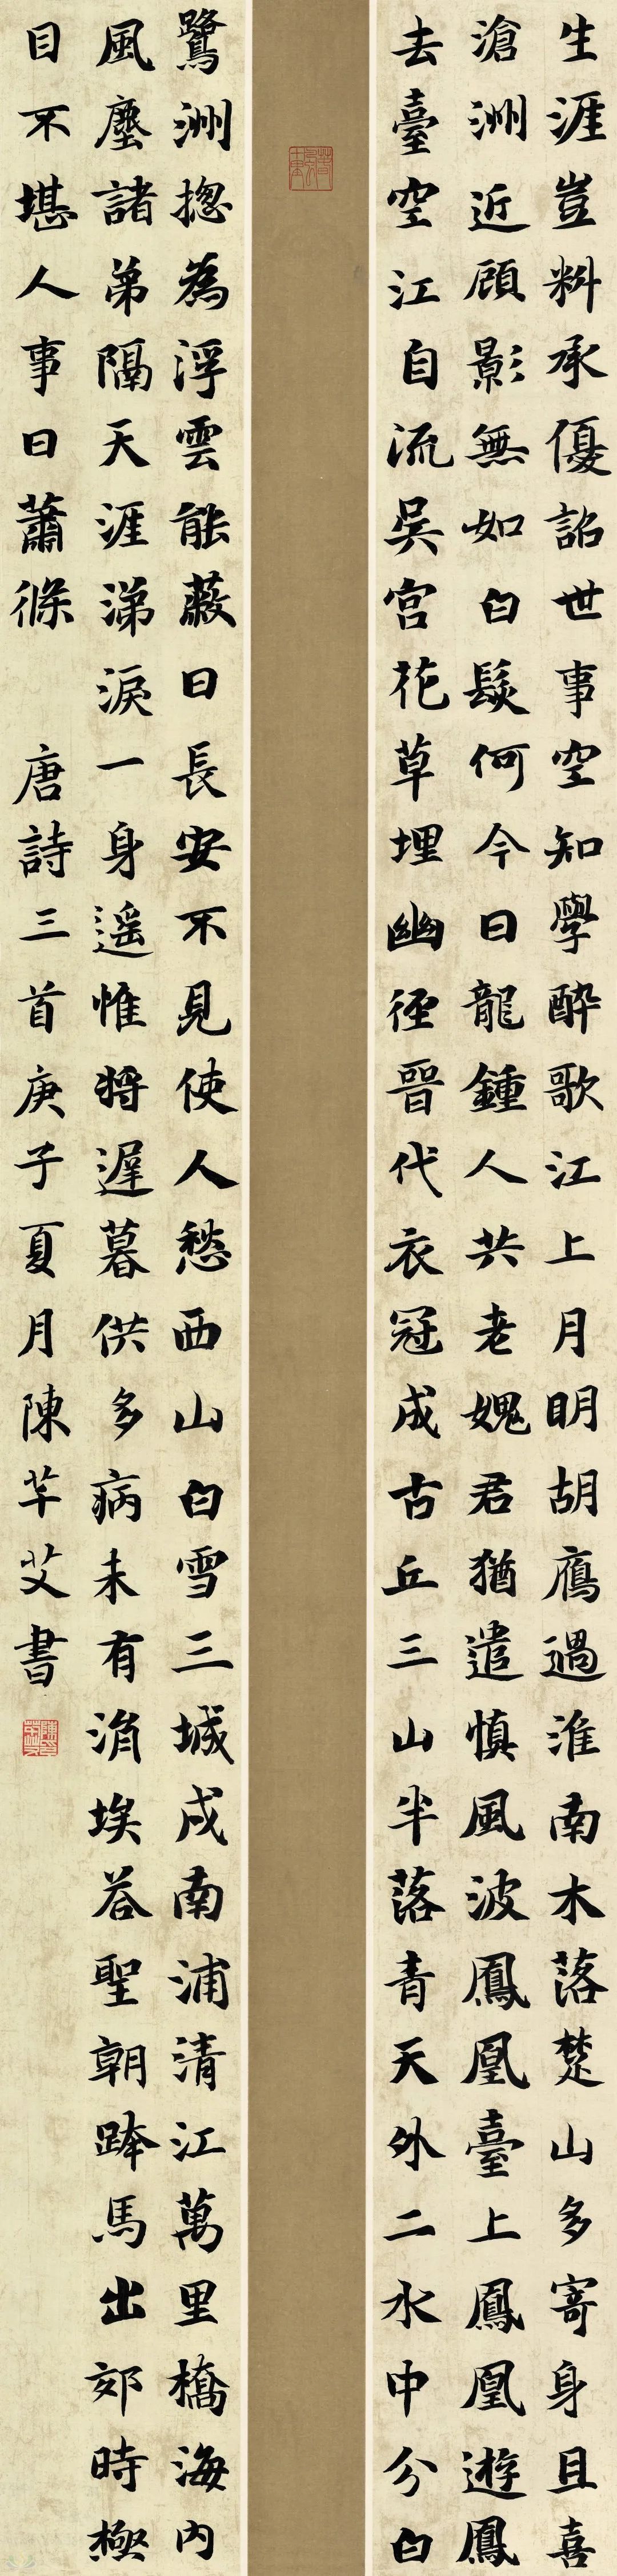 生涯豈料承優詔世事空知學醉歌江上月明胡鴈過淮南木落楚山多寄身且喜
滄洲近顧影無如白髮何今日龍鍾人共老媿君猶遣慎風波鳳凰臺上鳳凰遊鳳
去臺空江自流吳宮花草埋幽徑晉代衣冠成古丘三山半落青天外二水中分白
鷺洲揔為浮雲能蔽日長安不見使人愁西山白雪三城戍南浦清江萬里橋海內
風塵諸弟隔天涯涕淚一身遥惟將遲暮供多病未有涓埃荅聖朝跨馬出郊時極
目不堪人事日蕭條 唐詩三首庚子夏月陳芊艾書